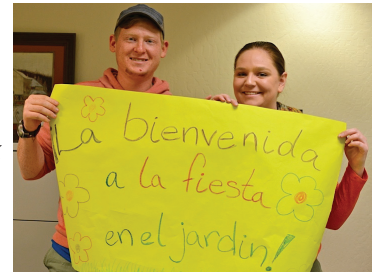 La bienvenida
a la fiesta
en el jardin!